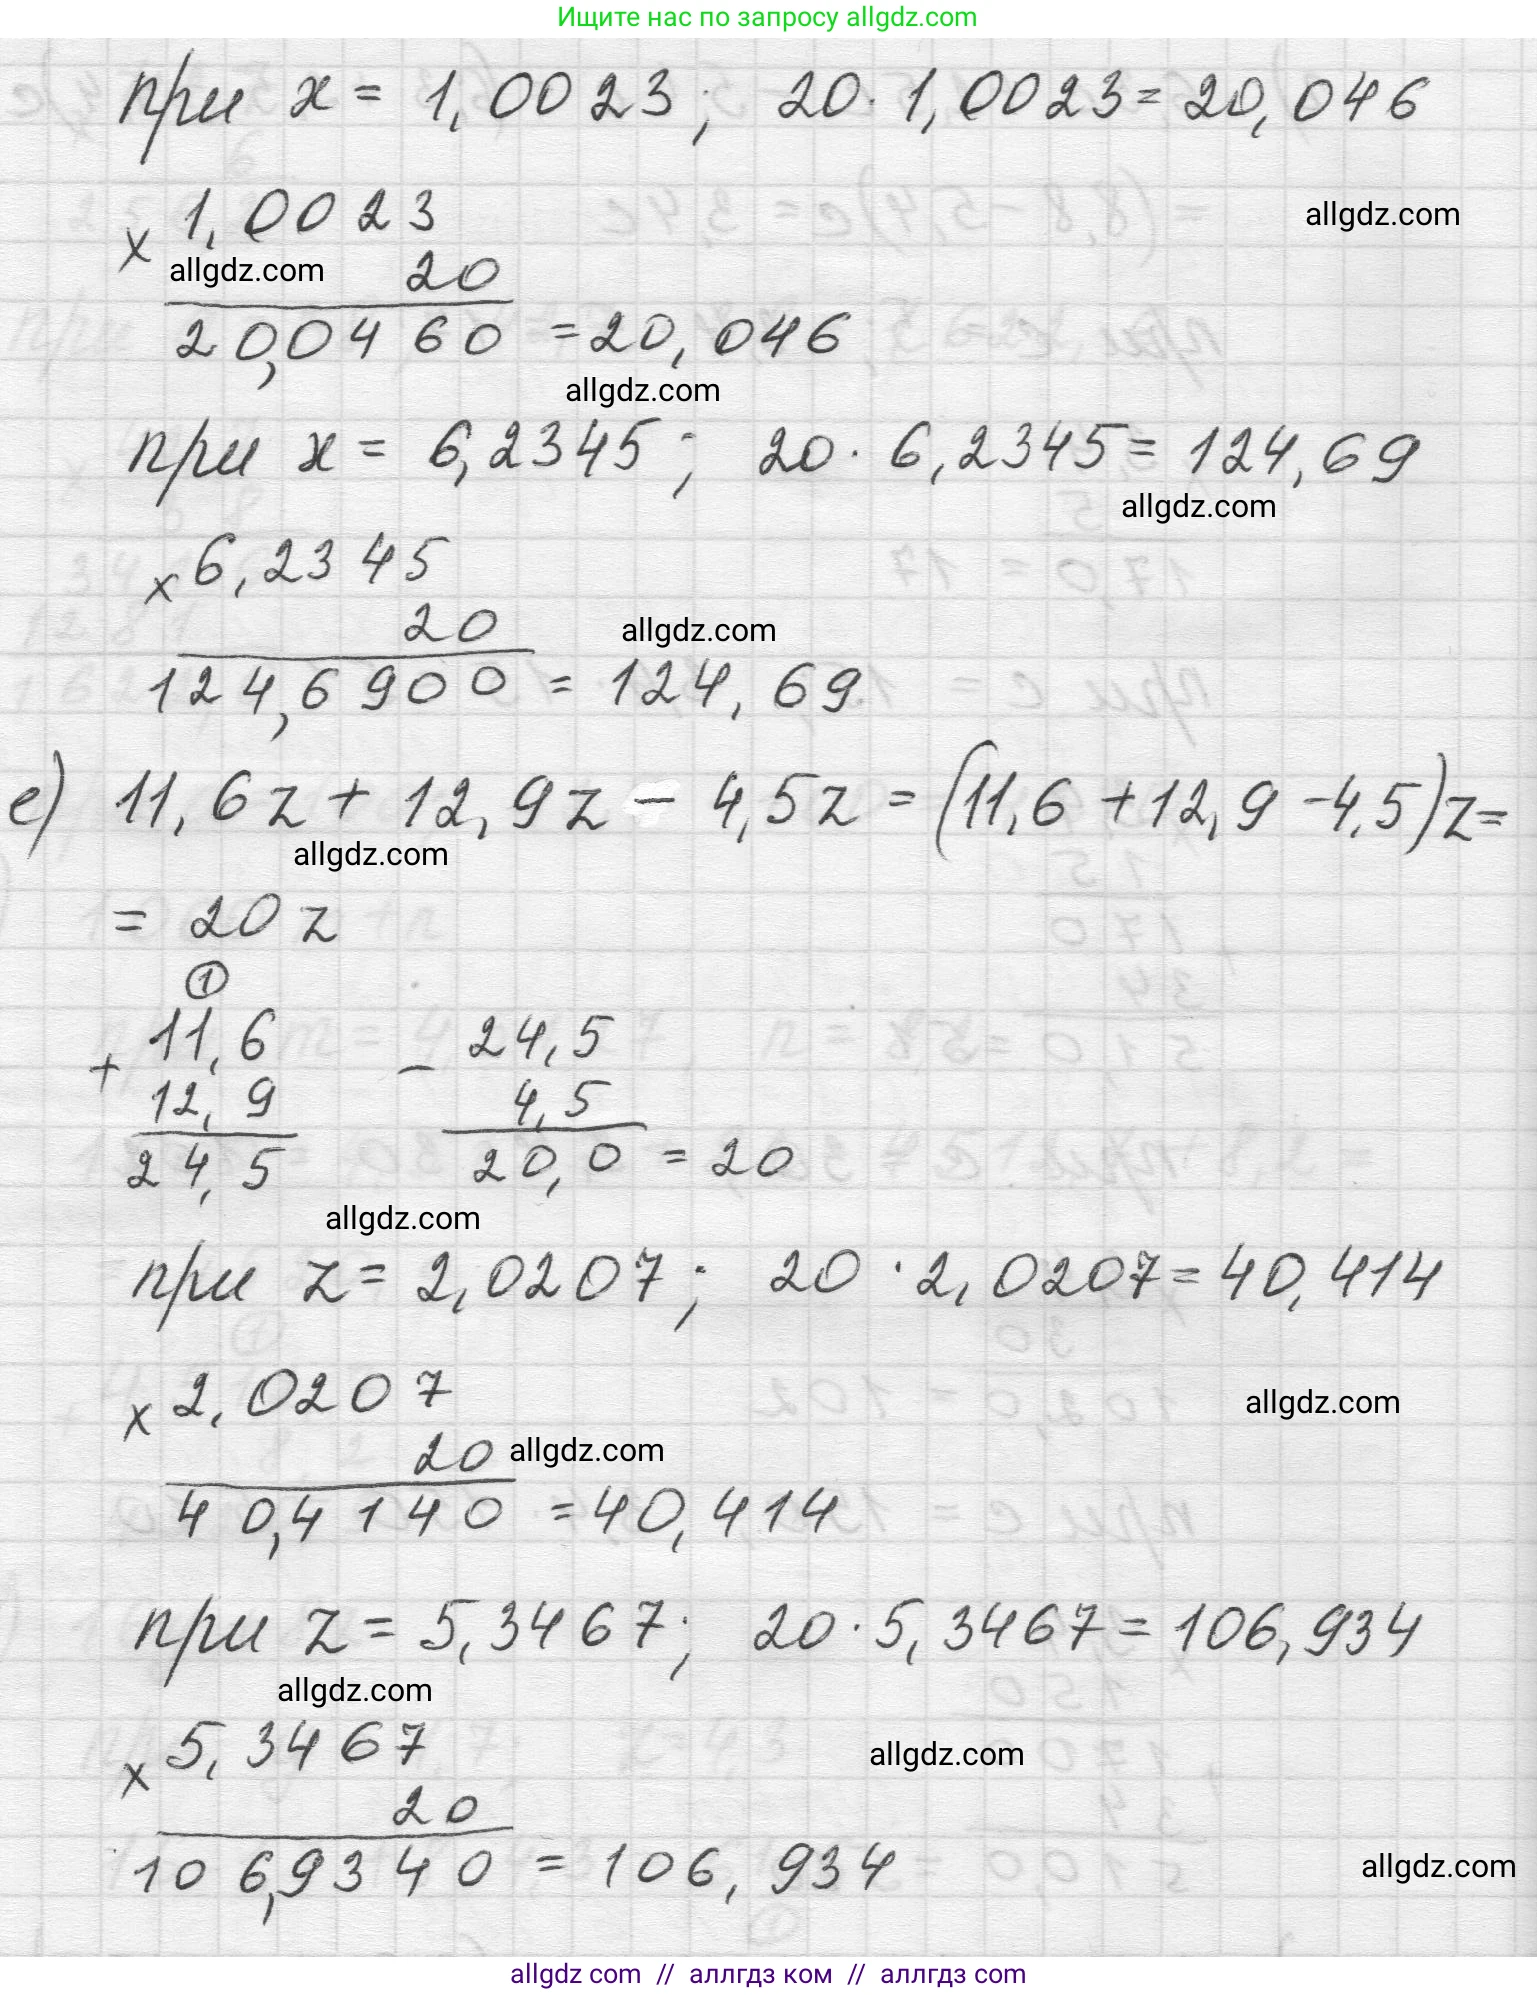 Ищите нас по запросу allgdz.com
при x = 1,0023; 20 · 1,0023 = 20,046
× 1,0023
allgdz.com
allgdz.com 20
20,0460 = 20,046
allgdz.com
при x = 6,2345; 20 · 6,2345 = 124,69
allgdz.com
× 6,2345
20 allgdz.com
124,6900 = 124,69
е) 11,6z + 12,9z - 4,5z = (11,6 + 12,9 - 4,5)z =
allgdz.com
= 20z
1
+ 11,6 - 24,5
12,9 4,5
24,5 20,0 = 20
allgdz.com
при z = 2,0207; 20 · 2,0207 = 40,414
× 2,0207
allgdz.com
20 allgdz.com
40,4140 = 40,414
при z = 5,3467; 20 · 5,3467 = 106,934
allgdz.com
× 5,3467
allgdz.com
20
106,9340 = 106,934
allgdz.com
allgdz com // аллгдз ком // аллгдз com